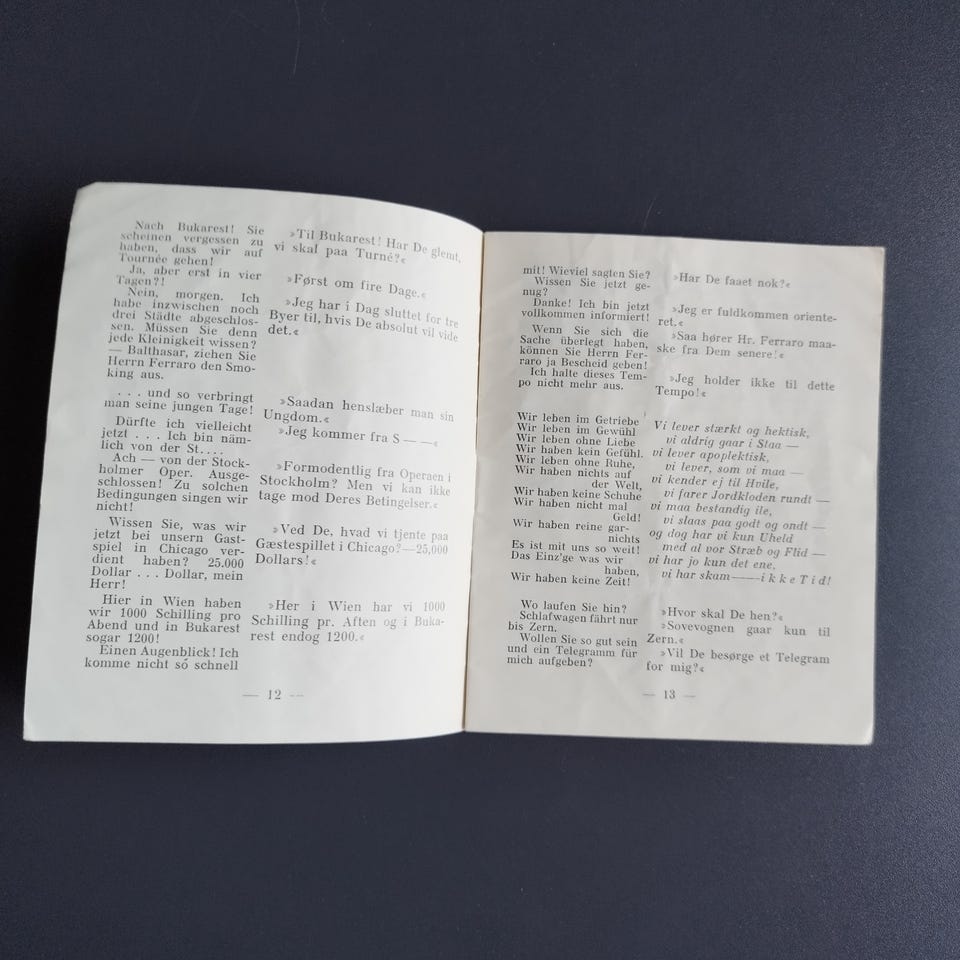 Nach Bukarest! Sie
scheinen vergessen zu
haben, dass wir auf
Tournée gehen!
Ja, aber erst in vier
Tagen?!
Nein, morgen. Ich
habe inzwischen noch
drei Städte abgeschlos-
sen. Müssen Sie denn
jede Kleinigkeit wissen?
— Balthasar, ziehen Sie
Herrn Ferraro den Smo-
king aus.
. . . und so verbringt
man seine jungen Tage!
Dürfte ich vielleicht
jetzt . . . Ich bin näm-
lich von der St. . . .
Ach — von der Stock-
holmer Oper. Ausge-
schlossen! Zu solchen
Bedingungen singen wir
nicht!
Wissen Sie, was wir
jetzt bei unsern Gast-
spiel in Chicago ver-
dient haben? 25.000
Dollar . . . Dollar, mein
Herr!
Hier in Wien haben
wir 1000 Schilling pro
Abend und in Bukarest
sogar 1200!
Einen Augenblick! Ich
komme nicht so schnell
»Til Bukarest! Har De glemt,
vi skal paa Turné?«
»Først om fire Dage.«
»Jeg har i Dag sluttet for tre
Byer til, hvis De absolut vil vide
det.«
»Saadan henslæber man sin
Ungdom.«
»Jeg kommer fra S — —«
»Formodentlig fra Operaen i
Stockholm? Men vi kan ikke
tage mod Deres Betingelser.«
»Ved De, hvad vi tjente paa
Gæstespillet i Chicago?—25,000
Dollars!«
»Her i Wien har vi 1000
Schilling pr. Aften og i Buka-
rest endog 1200.«
— 12 —
mit! Wieviel sagten Sie?
Wissen Sie jetzt ge-
nug?
Danke! Ich bin jetzt
vollkommen informiert!
Wenn Sie sich die
Sache überlegt haben,
können Sie Herrn Fer-
raro ja Bescheid geben!
Ich halte dieses Tem-
po nicht mehr aus.
Wir leben im Getriebe
Wir leben im Gewühl
Wir leben ohne Liebe
Wir haben kein Gefühl.
Wir leben ohne Ruhe,
Wir haben nichts auf
der Welt,
Wir haben keine Schuhe
Wir haben nicht mal
Geld!
Wir haben reine gar-
nichts
Es ist mit uns so weit!
Das Einz'ge was wir
haben,
Wir haben keine Zeit!
Wo laufen Sie hin?
Schlafwagen fährt nur
bis Zern.
Wollen Sie so gut sein
und ein Telegramm für
mich aufgeben?
»Har De faaet nok?«
»Jeg er fuldkommen oriente-
ret.«
»Saa hører Hr. Ferraro maa-
ske fra Dem senere!«
»Jeg holder ikke til dette
Tempo!«
Vi lever stærkt og hektisk,
vi aldrig gaar i Staa —
vi lever apoplektisk,
vi lever, som vi maa —
vi kender ej til Hvile,
vi farer Jordkloden rundt —
vi maa bestandig ile,
vi slaas paa godt og ondt —
og dog har vi kun Uheld
med al vor Stræb og Flid —
vi har jo kun det ene,
vi har skam——ikke Tid!
»Hvor skal De hen?«
»Sovevognen gaar kun til
Zern.«
»Vil De besørge et Telegram
for mig?«
— 13 —